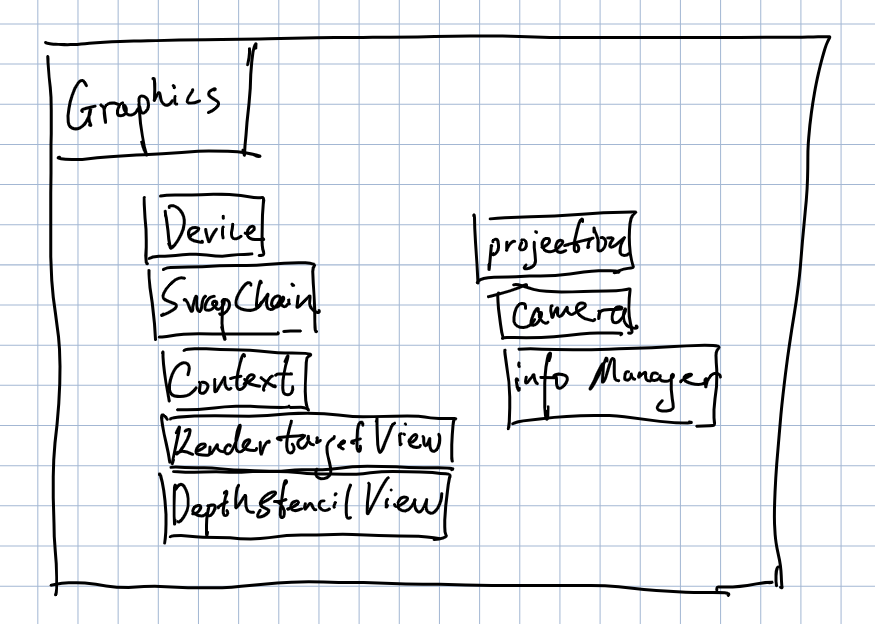 Graphics
Device
SwapChain
Context
Render target View
DepthStencil View
projection
Camera
info Manager